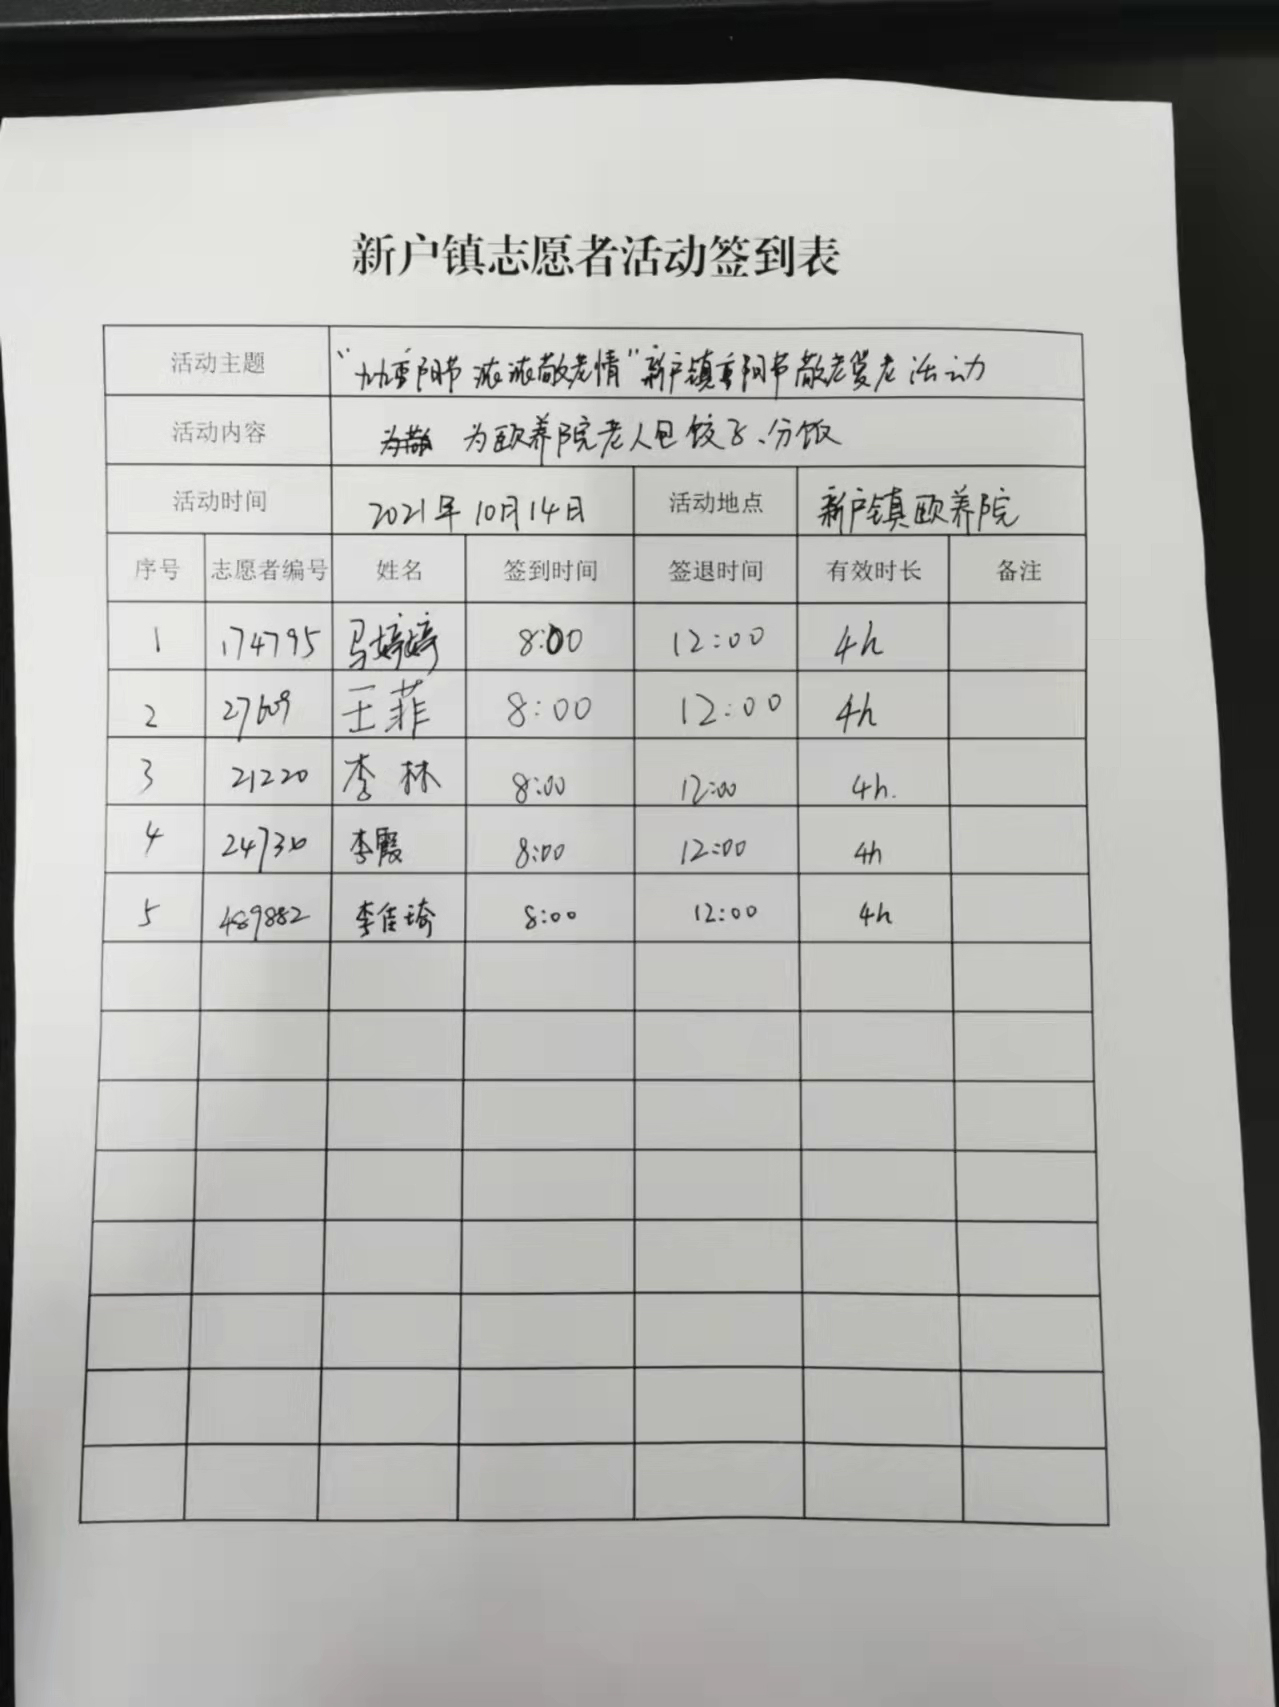 新户镇志愿者活动签到表
活动主题 “九九重阳节 浓浓敬老情”新户镇重阳节敬老爱老活动
活动内容 为欧养院老人包饺子、分饭
活动时间 2021年10月14日 活动地点 新户镇欧养院
序号 志愿者编号 姓名 签到时间 签退时间 有效时长 备注
1 174795 马婷婷 8:00 12:00 4h
2 27609 王菲 8:00 12:00 4h
3 21220 李林 8:00 12:00 4h.
4 24730 李霞 8:00 12:00 4h
5 489882 李佳琦 8:00 12:00 4h